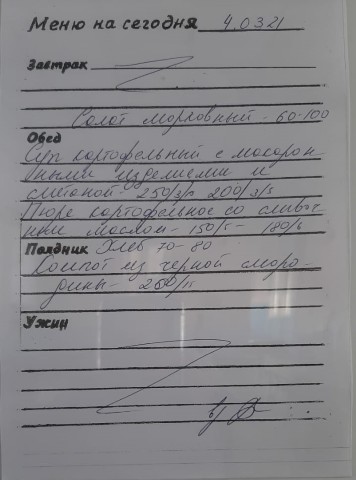 Меню на сегодня 4.03 21
Завтрак
Салат морковный - 60-100
Обед
Суп картофельный с макарон
ными изделиями и
сметаной - 250/3/5 200/3/5
Пюре картофельное со сливоч
ным маслом - 150/5 - 180/6
Полдник Хлеб 70 - 80
Компот из черной сморо-
дины - 200/11
Ужин